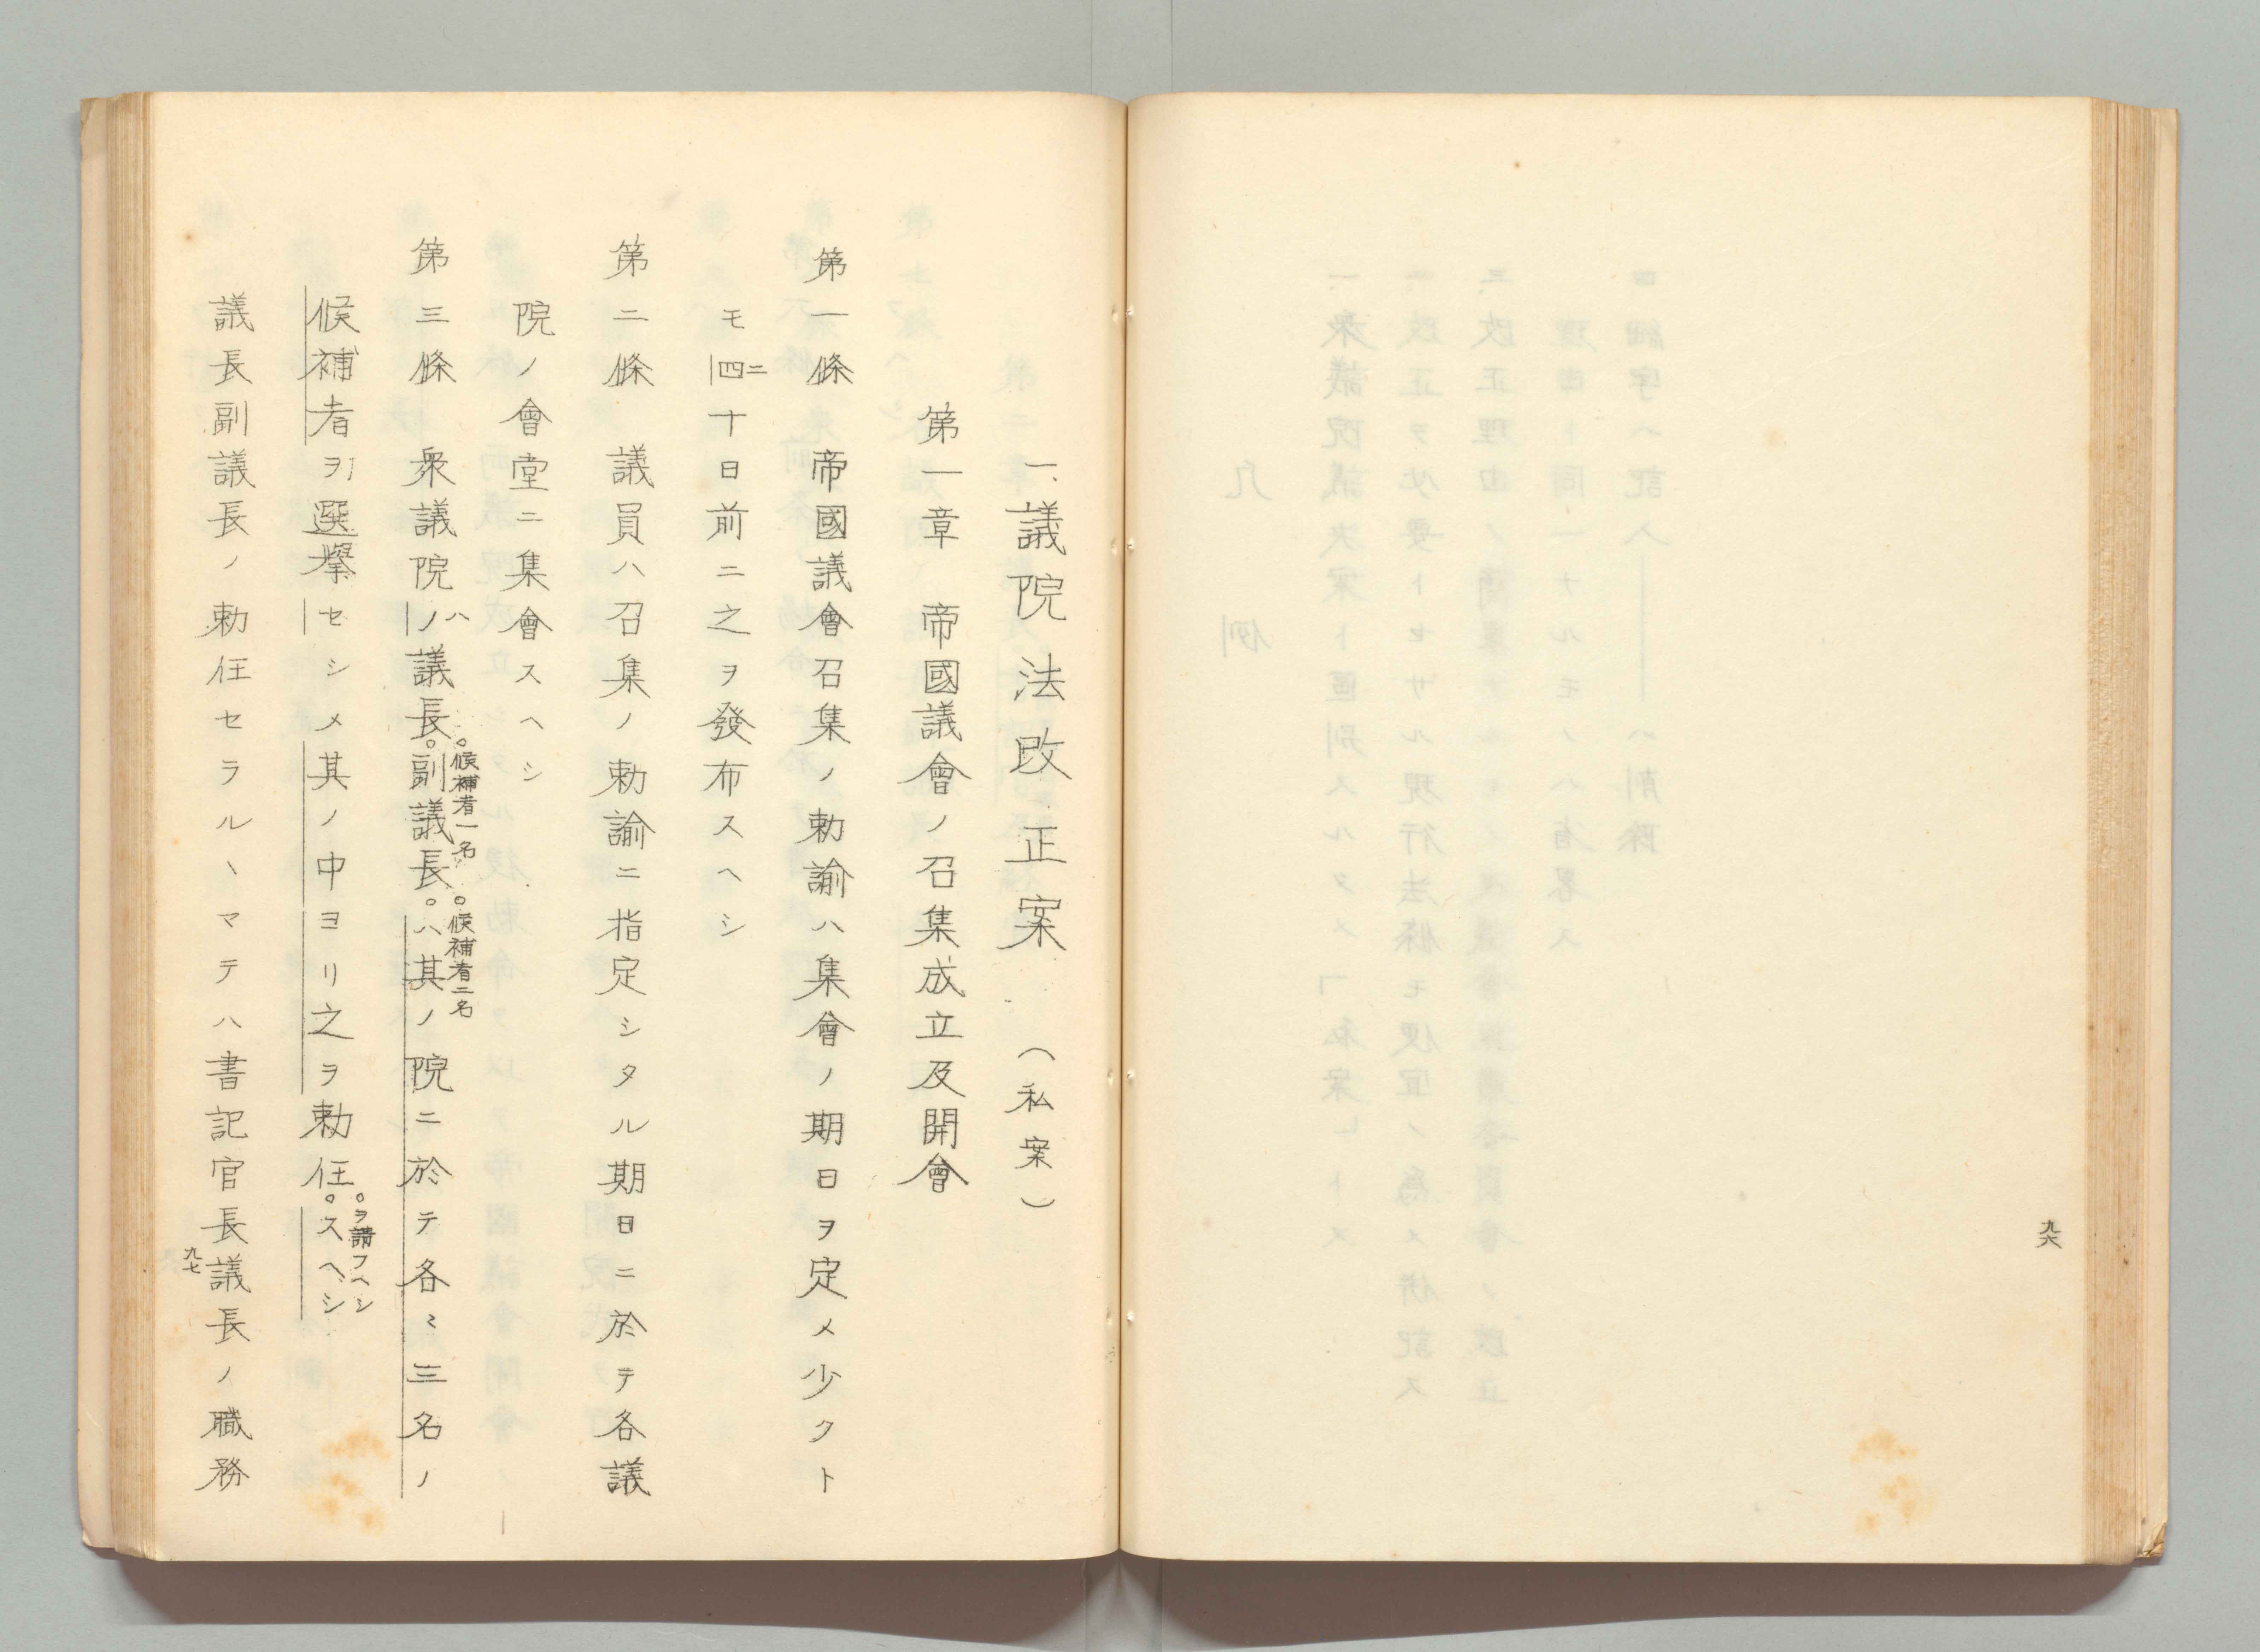 九六
一、議院法改正案　（私案）
第一章　帝國議會ノ召集成立及開會
第一條　帝國議會召集ノ勅諭ハ集會ノ期日ヲ定メ少クト
モ四十日前ニ之ヲ發布スヘシ
二
第二條　議員ハ召集ノ勅諭ニ指定シタル期日ニ於テ各議
院ノ會堂ニ集會スヘシ
第三條　衆議院ノ議長。副議長。ハ其ノ院ニ於テ各〻三名ノ
ハ
。候補者一名
。候補者二名
候補者ヲ選擧セシメ其ノ中ヨリ之ヲ勅任。スヘシ
。ヲ請フヘシ
議長副議長ノ勅任セラルヽマテハ書記官長議長ノ職務
九七